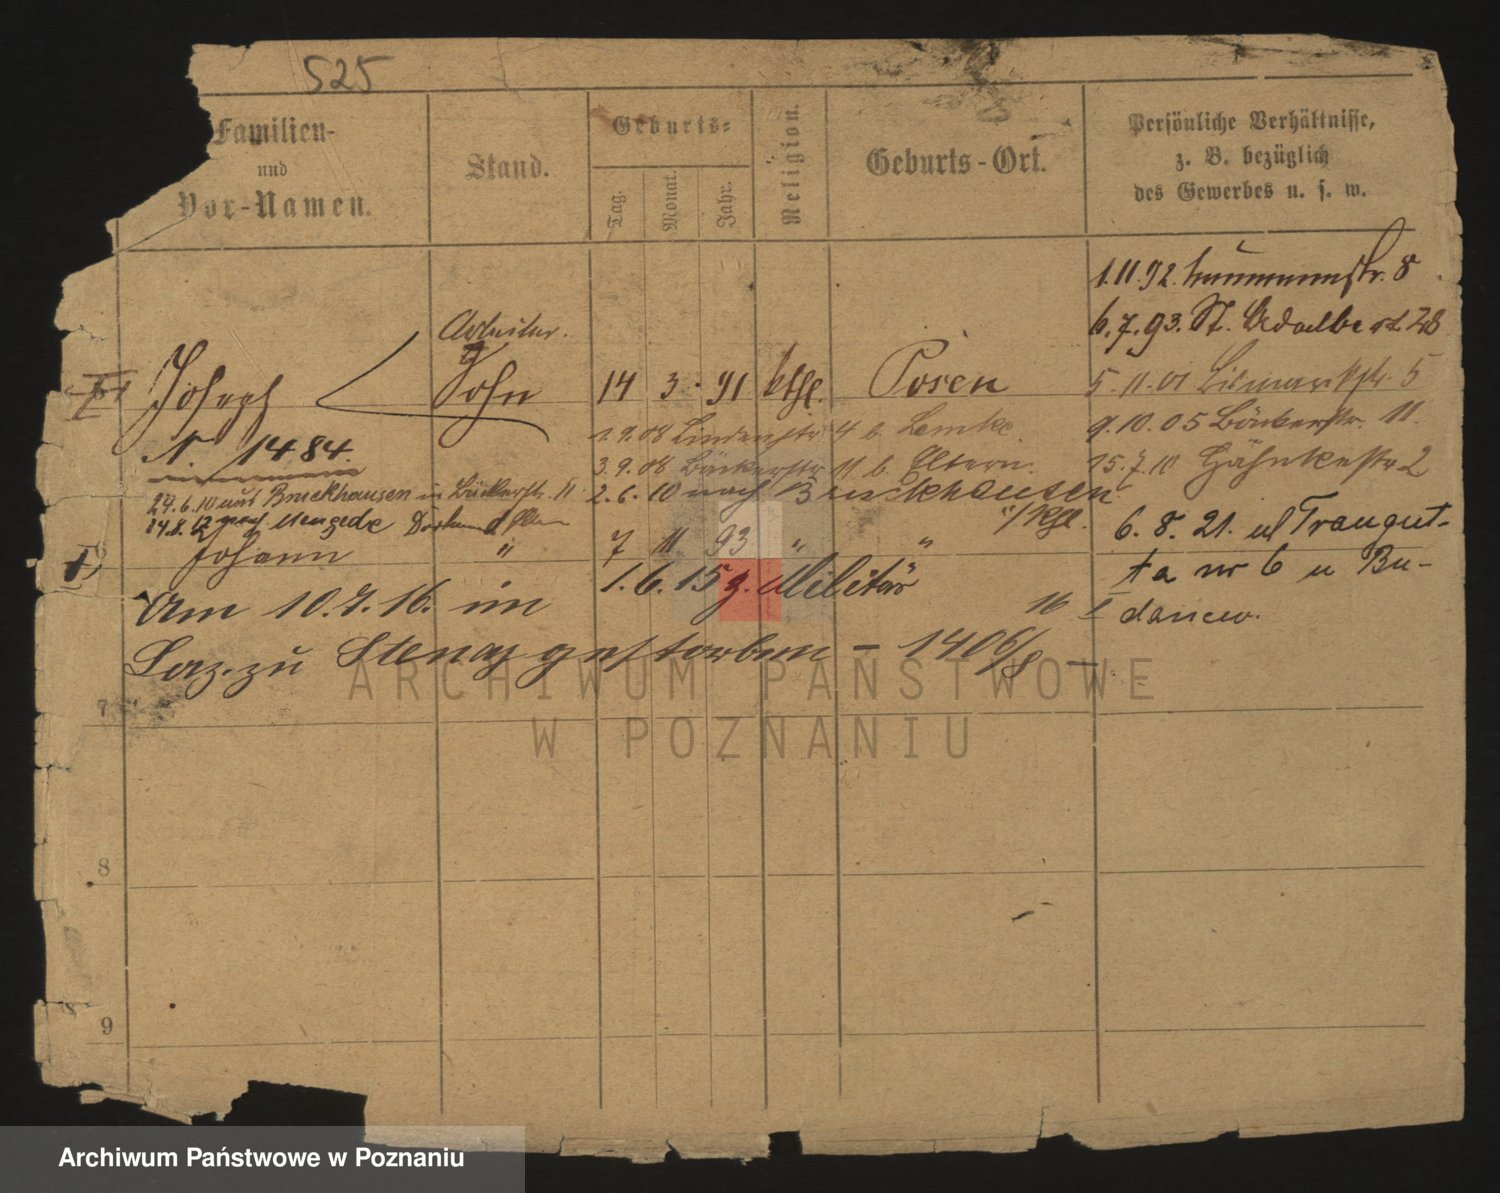 525
Familien-
und
Vor-Namen.
Stand.
Geburts-
Tag.
Monat.
Jahr.
Religion.
Geburts-Ort.
Persönliche Verhältnisse,
z. B. bezüglich
des Gewerbes u. s. w.
1.11.92. str. 8
6.7.93. St. Adalbert 28
Arbeiter.
Joseph Sohn 14 3. 91 kthl. Posen
5.11.01 Bismarckstr. 5
N. 1484.
1.9.08 Lindenstr 4 b. Lemke.
9.10.05 Bäckerstr. 11.
3.9.08 Bäckerstr 11 b. Eltern.
15.7.10 Hähnkestr 2
24.6.10 aus Bruckhausen in Bäckerstr. 11
2.6.10 nach Bruckhausen
14.8.12 nach Mengede
6
Johann " 7 11 93 " "
6.8.21. ul Traugut-
ta nr 6 u Bu-
dancew.
1.6.15 z. Militär
Am 10.7.16. im
16 I
Laz. zu Stenay gestorben - 1406/8 -
7
8
9
ARCHIWUM PAŃSTWOWE
W POZNANIU
Archiwum Państwowe w Poznaniu